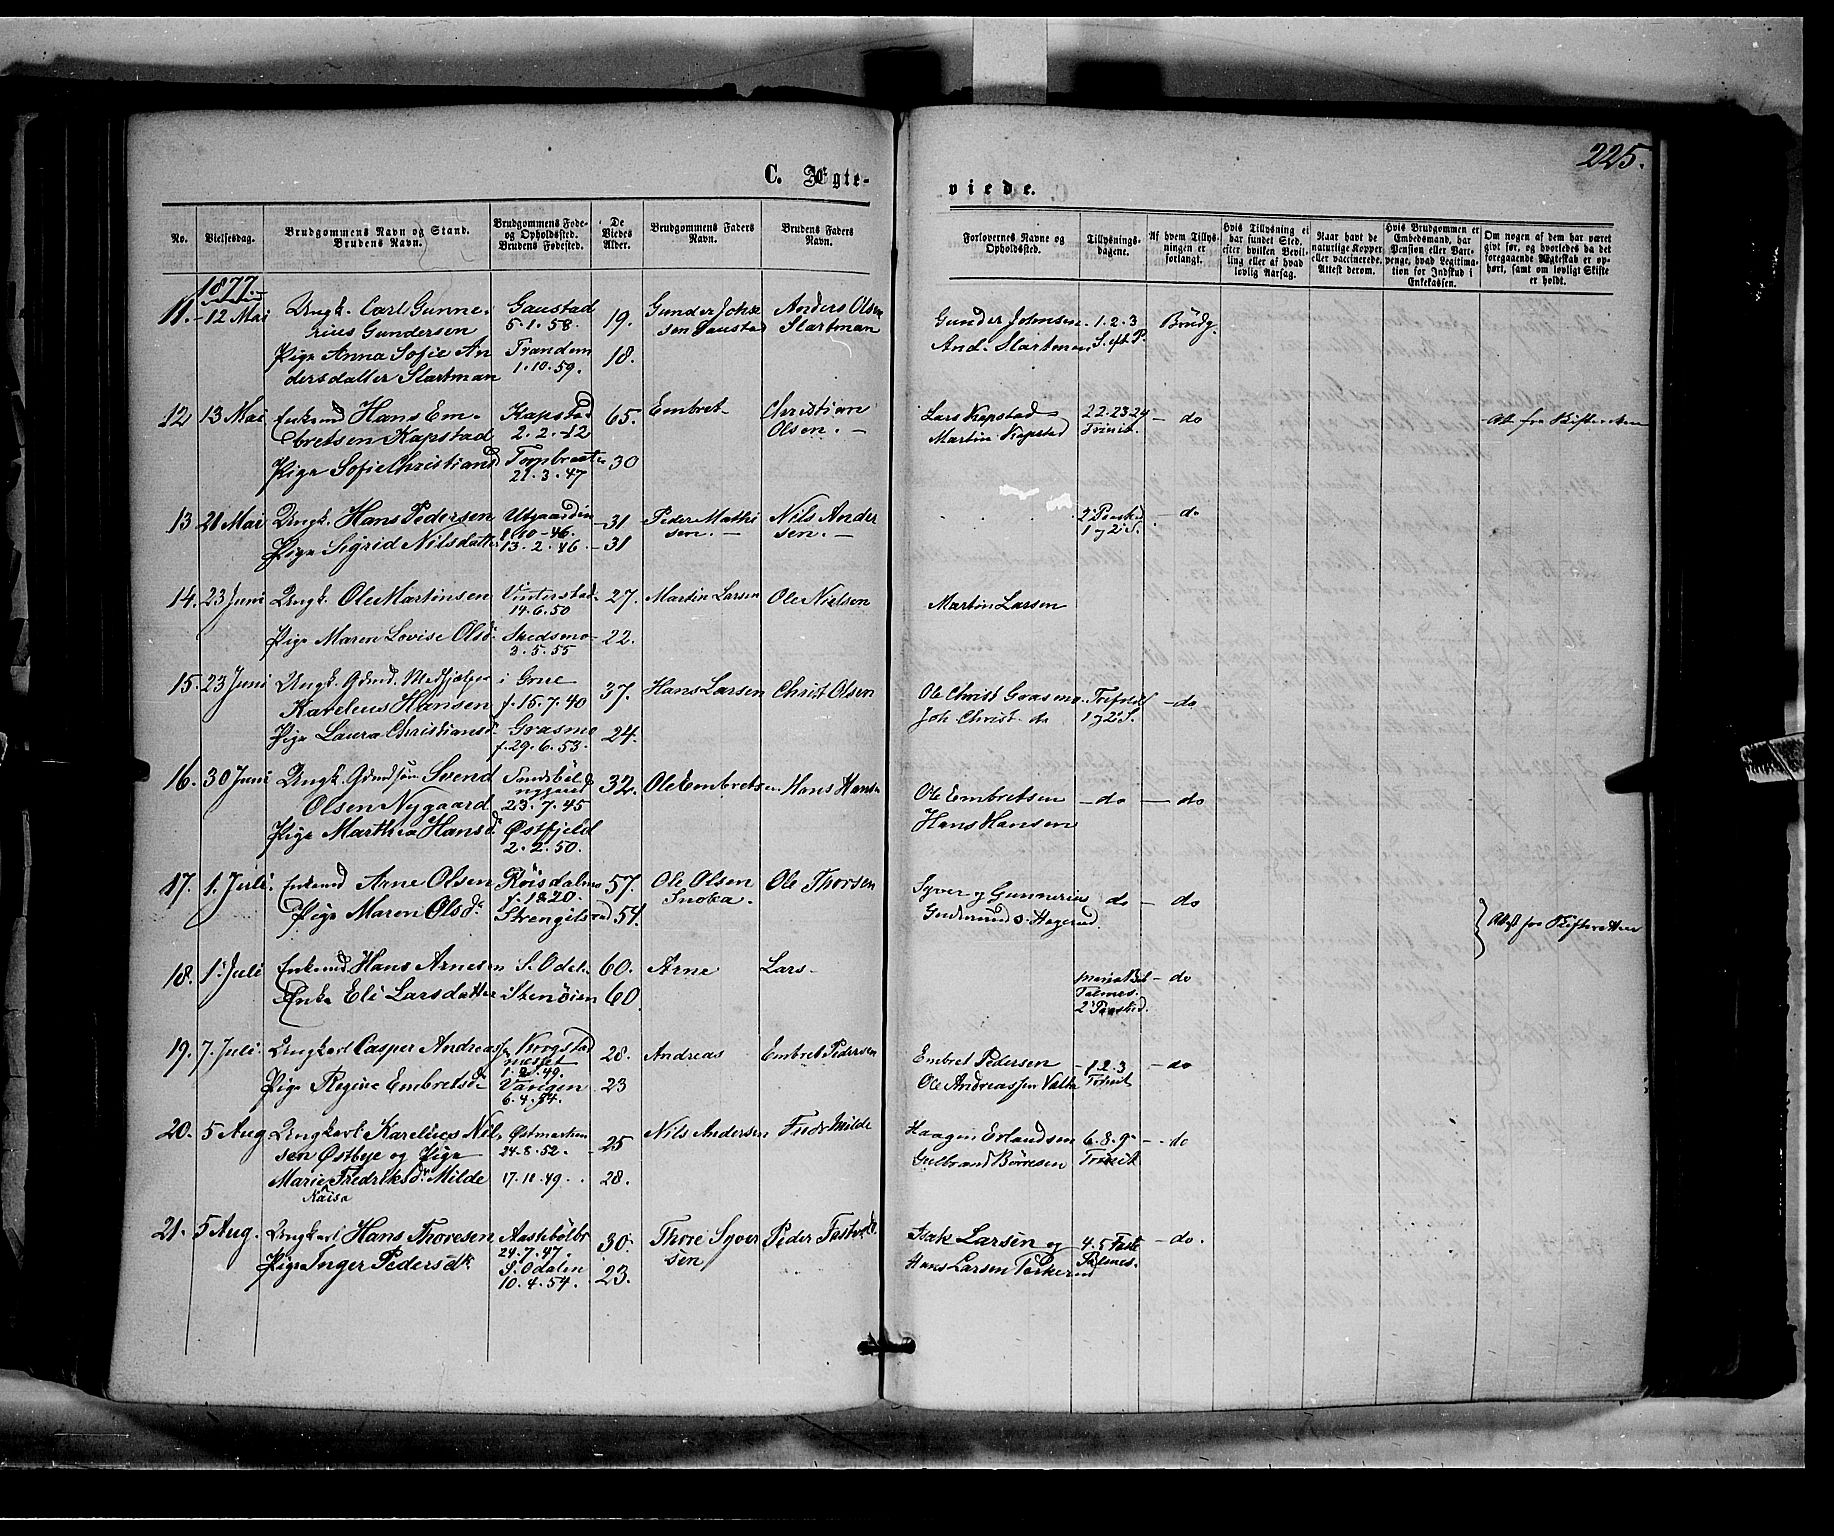 225.
C. Ægte-
viede.
No.
Vielsesdag.
Brudgommens Navn og Stand.
Brudens Navn.
Brudgommens Føde-
og Opholdssted.
Brudens Fødested.
De
Viedes
Alder.
Brudgommens Faders
Navn.
Brudens Faders
Navn.
Forlovernes Navne og
Opholdssted.
Tillysnings-
dagene.
Af hvem Tillys-
ningen er
forlangt.
Hvis Tillysning ei
har fundet Sted,
efter hvilken Bevil-
ling eller af hvad
lovlig Aarsag.
Naar havt de
naturlige Kopper
eller vaccinerede.
Attest derom.
Hvis Brudgommen er
Embedsmand, har
Pension eller Vart-
penge, hvad Legitima-
tion for Indskud i
Enkekassen.
Om nogen af dem har været
gift før, og hvorledes da det
foregaaende Ægteskab er op-
hørt, samt om lovligt Skifte
er holdt.
1877.
11. 12 Mai Ungk. Carl Gunne- Gaustad 19. Gunder John Anders Olsen Gunder Johnsen 1.2.3 Brudg.
rius Gundersen 5.1.58. sen Gaustad Slartman And. Slartman S. eft P.
Pige Anna Sofie An Tranden 18.
dersdatter Slartman 1.10.59.
12 13 Mai Enkemd Hans Em- Kapstad 65. Embret Christian Lars Kapstad 22.23.24 do Att. fra Skifteretten
bretsen Kapstad 2.2.12 Olsen. Martin Kapstad Trinit.
Pige Sofie Christiansd 30
21.3.47
13 21 Mai Ungk. Hans Pedersen 31 Peder Mathi Nils Ander do
10-46. sen. sen. 1 og 2 S.
Pige Sigrid Nilsdatter 13.2.46. 31
14. 23 Juni Ungk. Ole Martinsen Vinterstad 27. Martin Larsen Ole Nielsen Martin Larsen
14.6.50
Pige Maren Lovise Olsd. Skedsmo 22.
3.5.55
15. 23 Juni Ungk. Gdmd. Medhjelper i Grue 37. Hans Larsen Christ Olsen Ole Christ Grasmo do
Karelius Hansen f. 15.7.40 Joh Christ. do 1 og 2 S.
Pige Laura Christiansd. Grasmo 24.
f. 29.6.53.
16. 30 Juni Ungk. Gdmdsøn Svend 32. Ole Embretsen Hans Hansen Ole Embretsen do do
Olsen Nygaard 23.7.45 Hans Hansen
Pige Marthea Hansd. Østfjeld
2.2.50.
17. 1. Juli. Enkemd Arne Olsen 57. Ole Olsen Ole Thorsen Syver og Gunnerius do do
f. 1820. Snoka.
Pige Maren Olsd. 54. Hagerud. Attest fra Skifteretten
18. 1. Juli Enkemd Hans Arnesen S. Odal. 60. Arne Lars do
Enke Eli Larsdatter Stenøien 60.
19. 7. Juli. Ungkarl Casper Andreas 28. Andreas Embret Pedersen Embret Pedersen 1.2.3 do
1.2.49. Ole Andreassen Trinit
Pige Regine Embretsd. Varigen 23
6.4.54.
20. 5 Aug Ungkarl Karelius Nil- Østmarken 25 Nils Andersen Fredr Milde Haagen Erlandsen 6.8.9 do
sen Østbye og Pige 24.8.52. Gulbrand Børresen Trinit
Marie Fredriksd. Milde 17.11.49 28.
21. 5 Aug. Ungkarl Hans Thoresen 30. Thore Syver Peder Isak Larsen og 4.5 do.
24.7.47. sen Hans Larsen Torkerud
Pige Inger Pedersdtr. S. Odalen 23.
10.4.54.